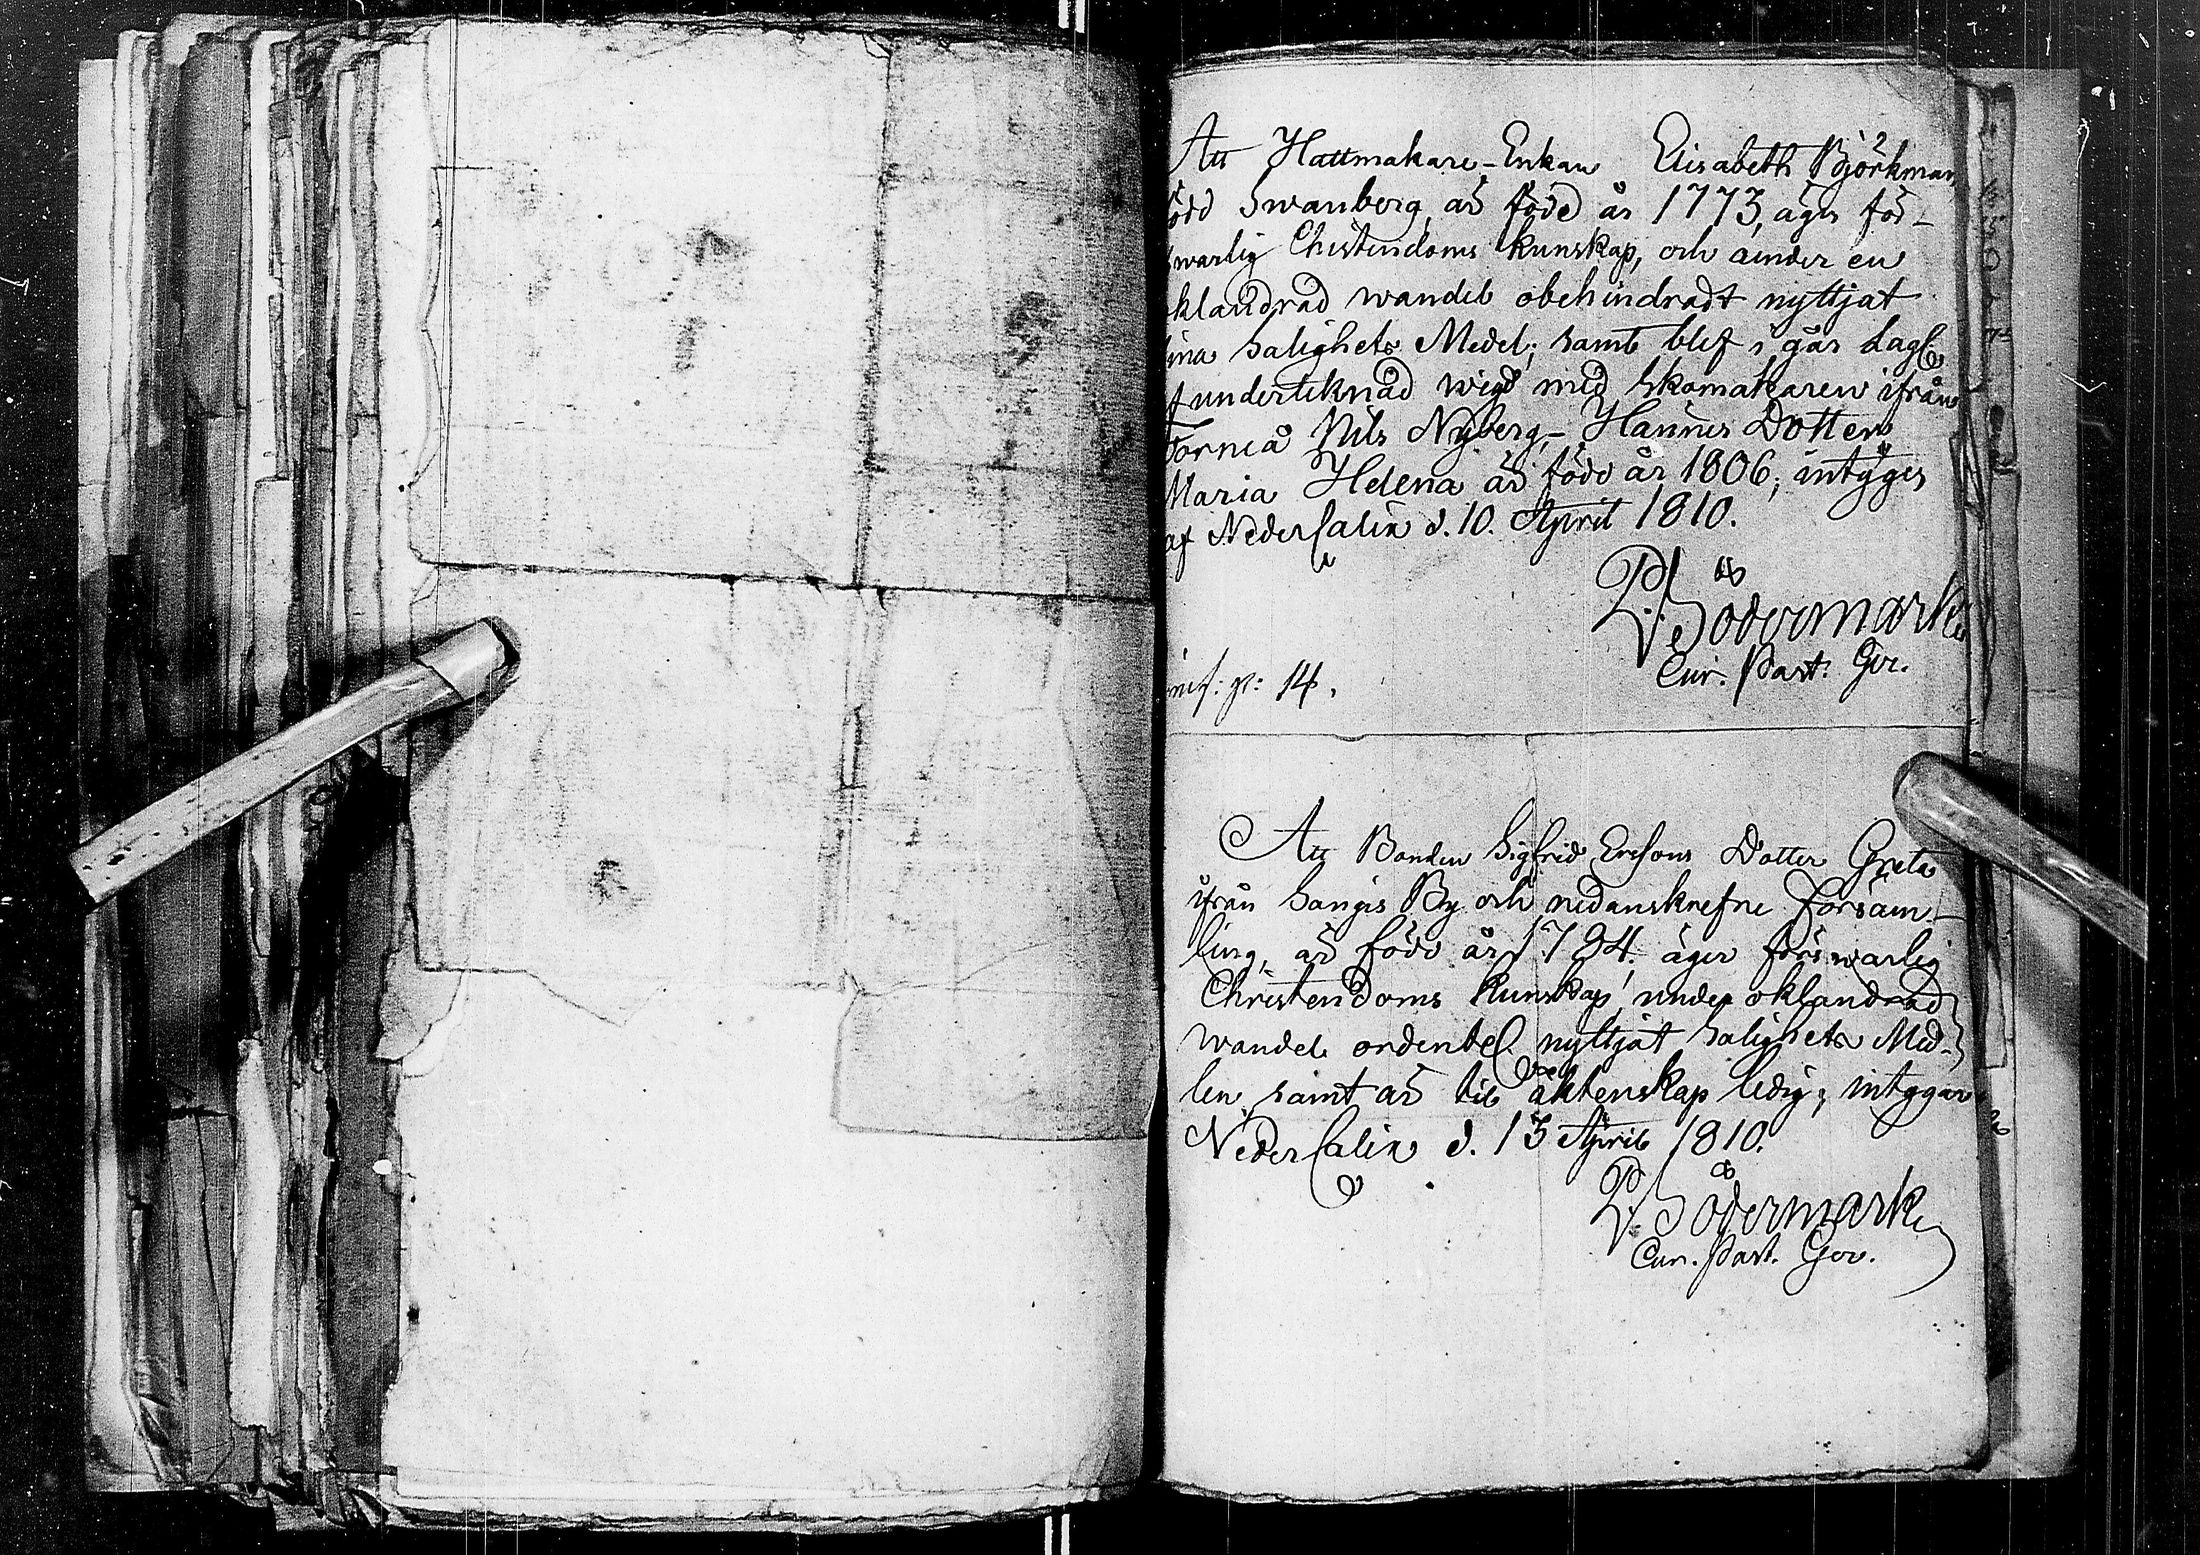 Att Hattmakare-Enkan Elisabeth Björkman
född Swanberg, är född år 1773, äger för-
swarlig Christendoms kunskap, och under en
oklandrad wandel obehindradt nyttjat
sina Salighets Medel; samt blef i går lagl.
af undertecknad wigd med Skomakaren ifrån
Torneå Nils Nyberg, - Hännes Dotter
Maria Helena är född år 1806; intyges
af NederCalix d. 10. April 1810.
P. Södermark
Cur. Past. Ger.
inf: p: 14.
2
Att Bonden Sigfrid Ersons Dotter Greta
ifrån Sangis By och nedanskrefne Försam-
ling, är född år 1794. äger förswarlig
Christendoms Kunskap, under oklandrad
wandel ordentel. nyttjat Salighets Med-
len, samt är til äktenskap ledig; intygar
NederCalix d. 15 April 1810.
P. Södermark
Cur. Past. Ger.